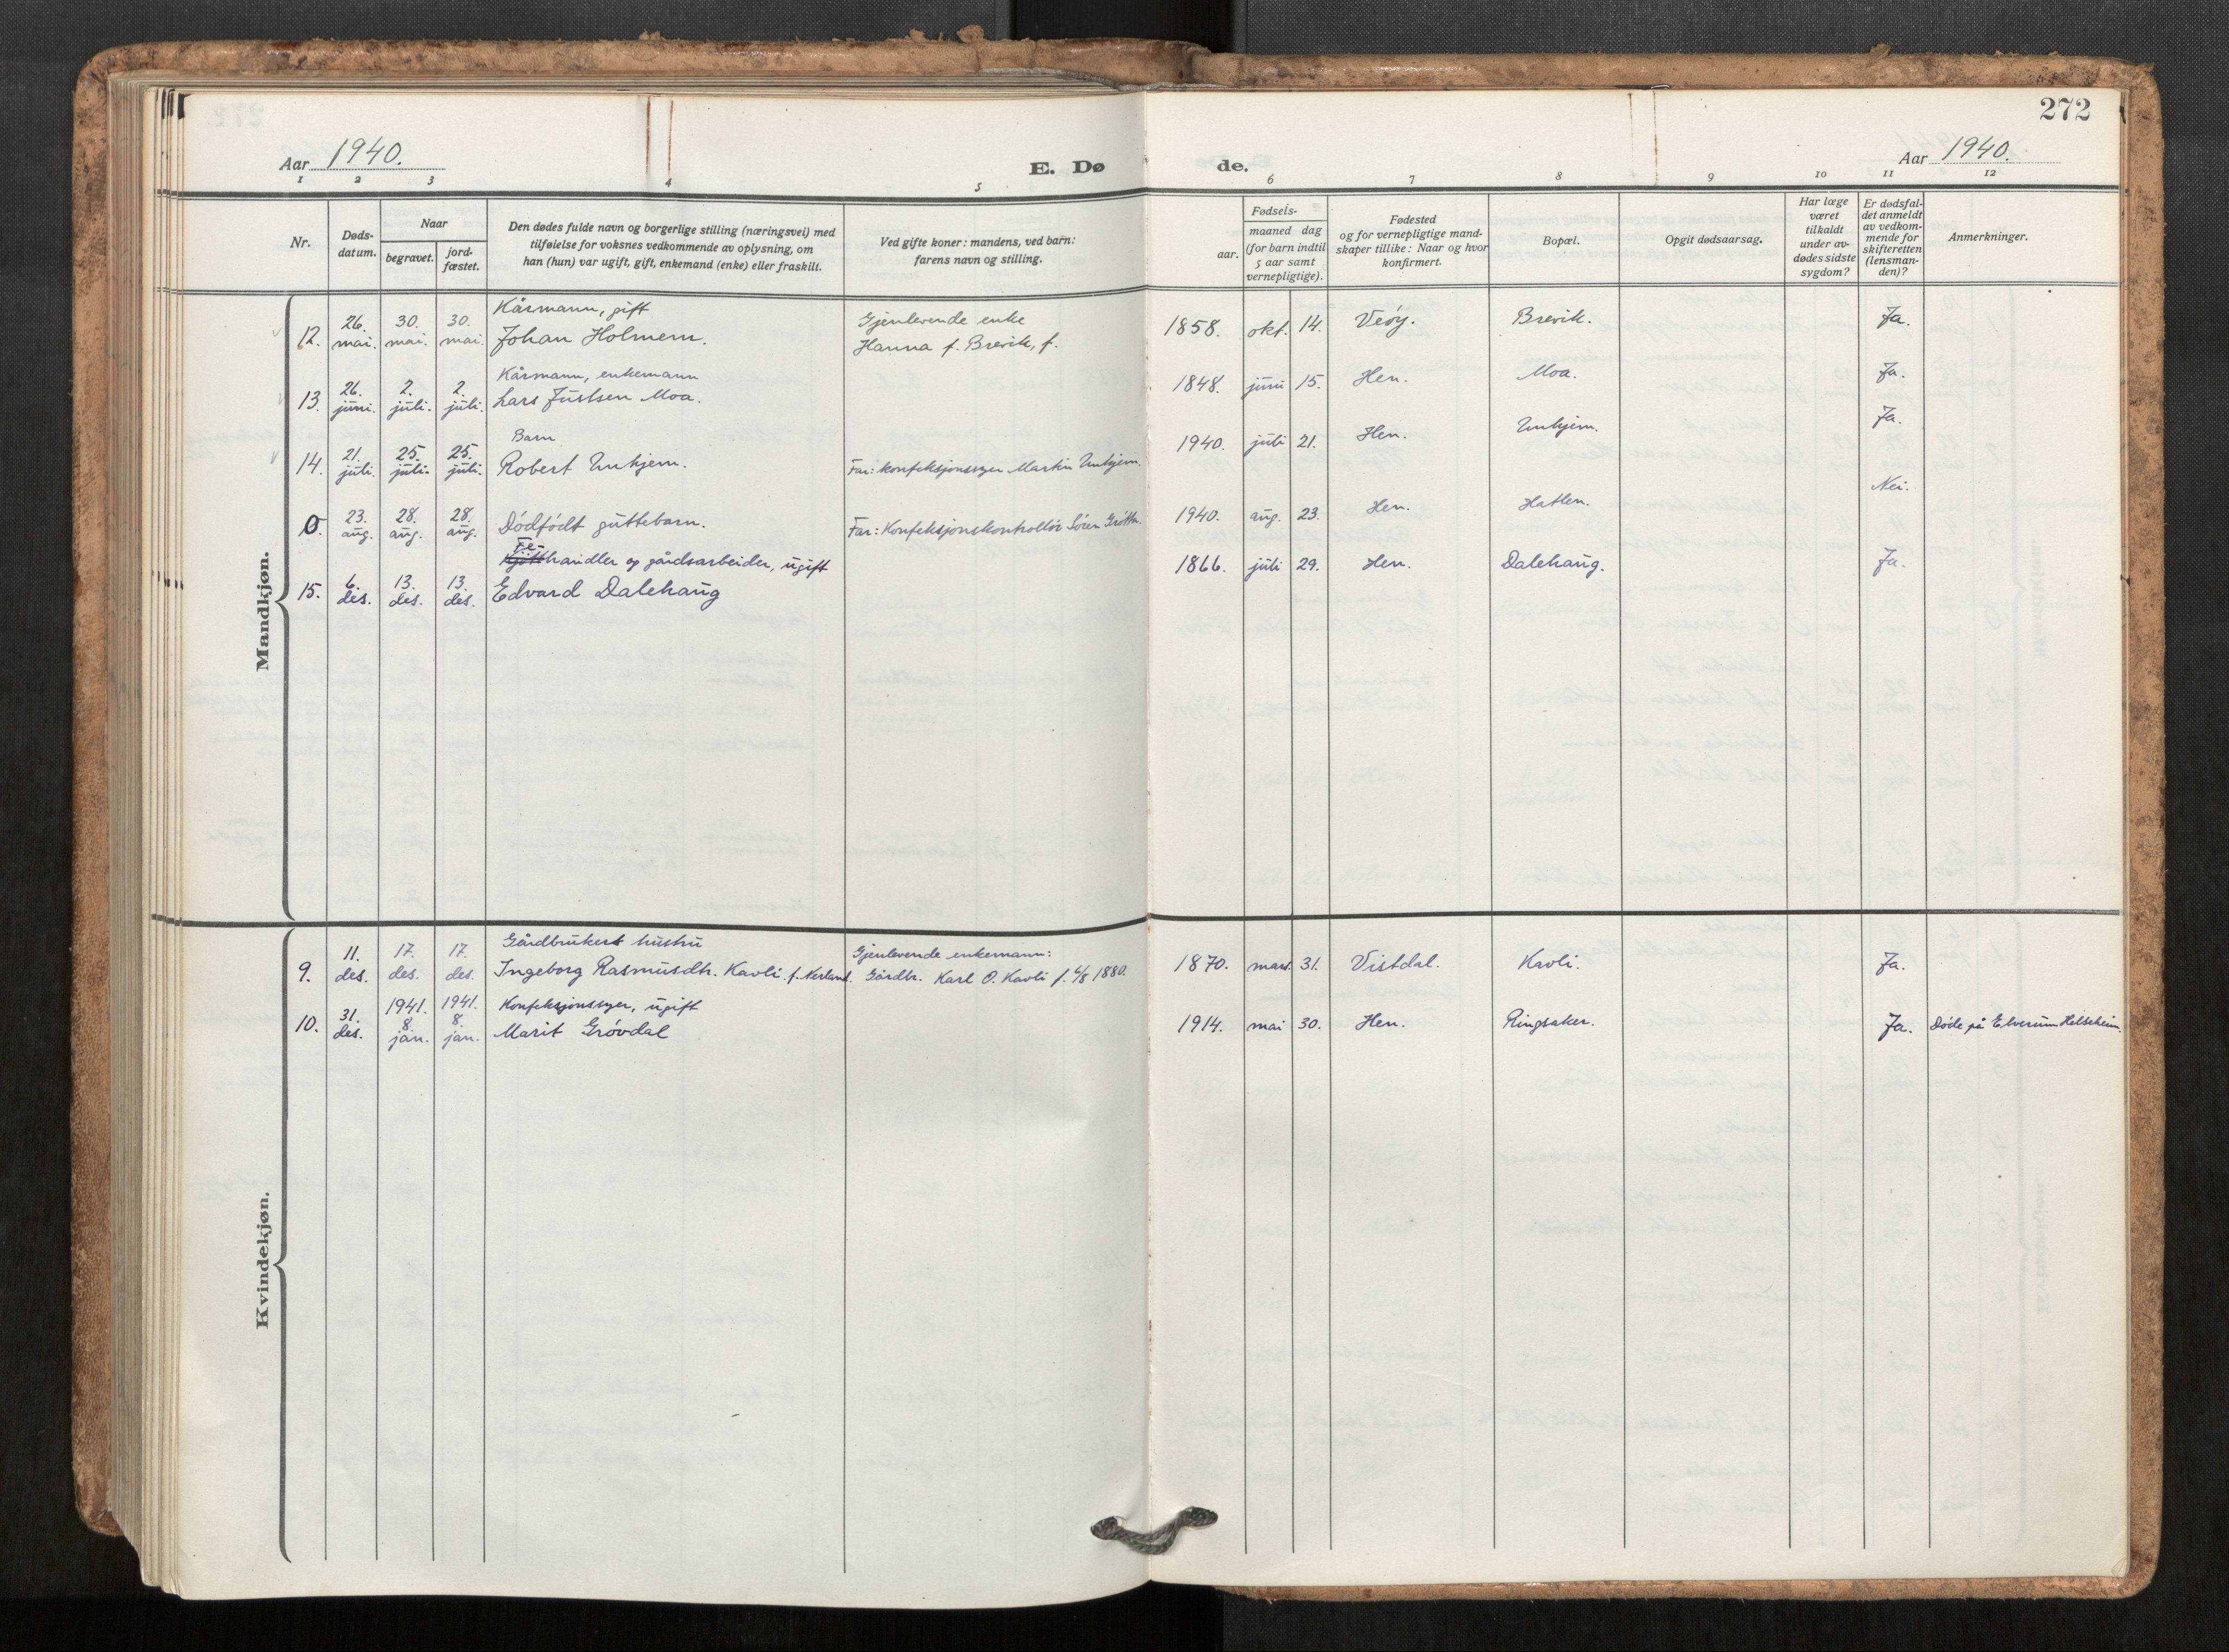 272
Aar 1940.
E. Dø
de.
Aar 1940.
1 2 3 4 5 6 7 8 9 10 11 12
Nr.
Døds-
datum.
Naar
begravet.
jord-
fæstet.
Den dødes fulde navn og borgerlige stilling (næringsvei) med
tilføielse for voksnes vedkommende av oplysning, om
han (hun) var ugift, gift, enkemand (enke) eller fraskilt.
Ved gifte koner: mandens, ved barn:
farens navn og stilling.
Fødsels-
aar.
maaned dag
(for barn indtil
5 aar samt
vernepligtige).
Fødested
og for vernepligtige mand-
skaper tillike: Naar og hvor
konfirmert.
Bopæl.
Opgit dødsaarsag.
Har læge
været
tilkaldt
under av-
dødes sidste
sygdom?
Er dødsfal-
det anmeldt
av vedkom-
mende for
skifteretten
(lensman-
den)?
Anmerkninger.
Mandkjøn.
Kårmann, gift
Gjenlevende enke
12. 26. mai. 30. mai. 30. mai. Johan Holmem. Hanna f. Brevik, f. 1858. okt. 14. Veøy. Brevik. Ja.
Kårmann, enkemann
13. 26. juni. 2. juli. 2. juli. Lars Justsen Moa. 1848. juni 15. Hen. Moa. Ja.
Barn
14. 21. juli. 25. juli. 25. juli. Robert Unhjem. Far: konfeksjonssyer Martin Unhjem. 1940. juli 21. Hen. Unhjem. Ja.
0. 23. aug. 28. aug. 28. aug. Dødfødt guttebarn. Far: Konfeksjonskontrollør Søren 1940. aug. 23. Hen. Hatlen. Nei.
Fe-
handler og gårdsarbeider, ugift
15. 6. des. 13. des. 13. des. Edvard Dalehaug 1866. juli 29. Hen. Dalehaug. Ja.
Kvindekjøn.
Gårdbrukers hustru
Gjenlevende enkemann:
9. 11. des. 17. des. 17. des. Ingeborg Rasmusdtr. Kavli f. Nerland. Gårdbr. Karl O. Kavli f. 4/8 1880. 1870. mars. 31. Vistdal. Kavli. Ja.
Konfeksjonssyer, ugift
10. 31. des. 1941. 8. jan. 1941. 8. jan. Marit Grøvdal 1914. mai 30. Hen. Ringsaker. Ja. Døde på Elverum Helseheim.